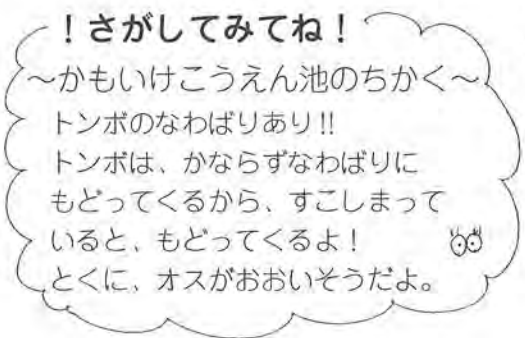 ！さがしてみてね！
～かもいけこうえん池のちかく～
トンボのなわばりあり!!
トンボは、かならずなわばりに
もどってくるから、すこしまって
いると、もどってくるよ！
とくに、オスがおおいそうだよ。